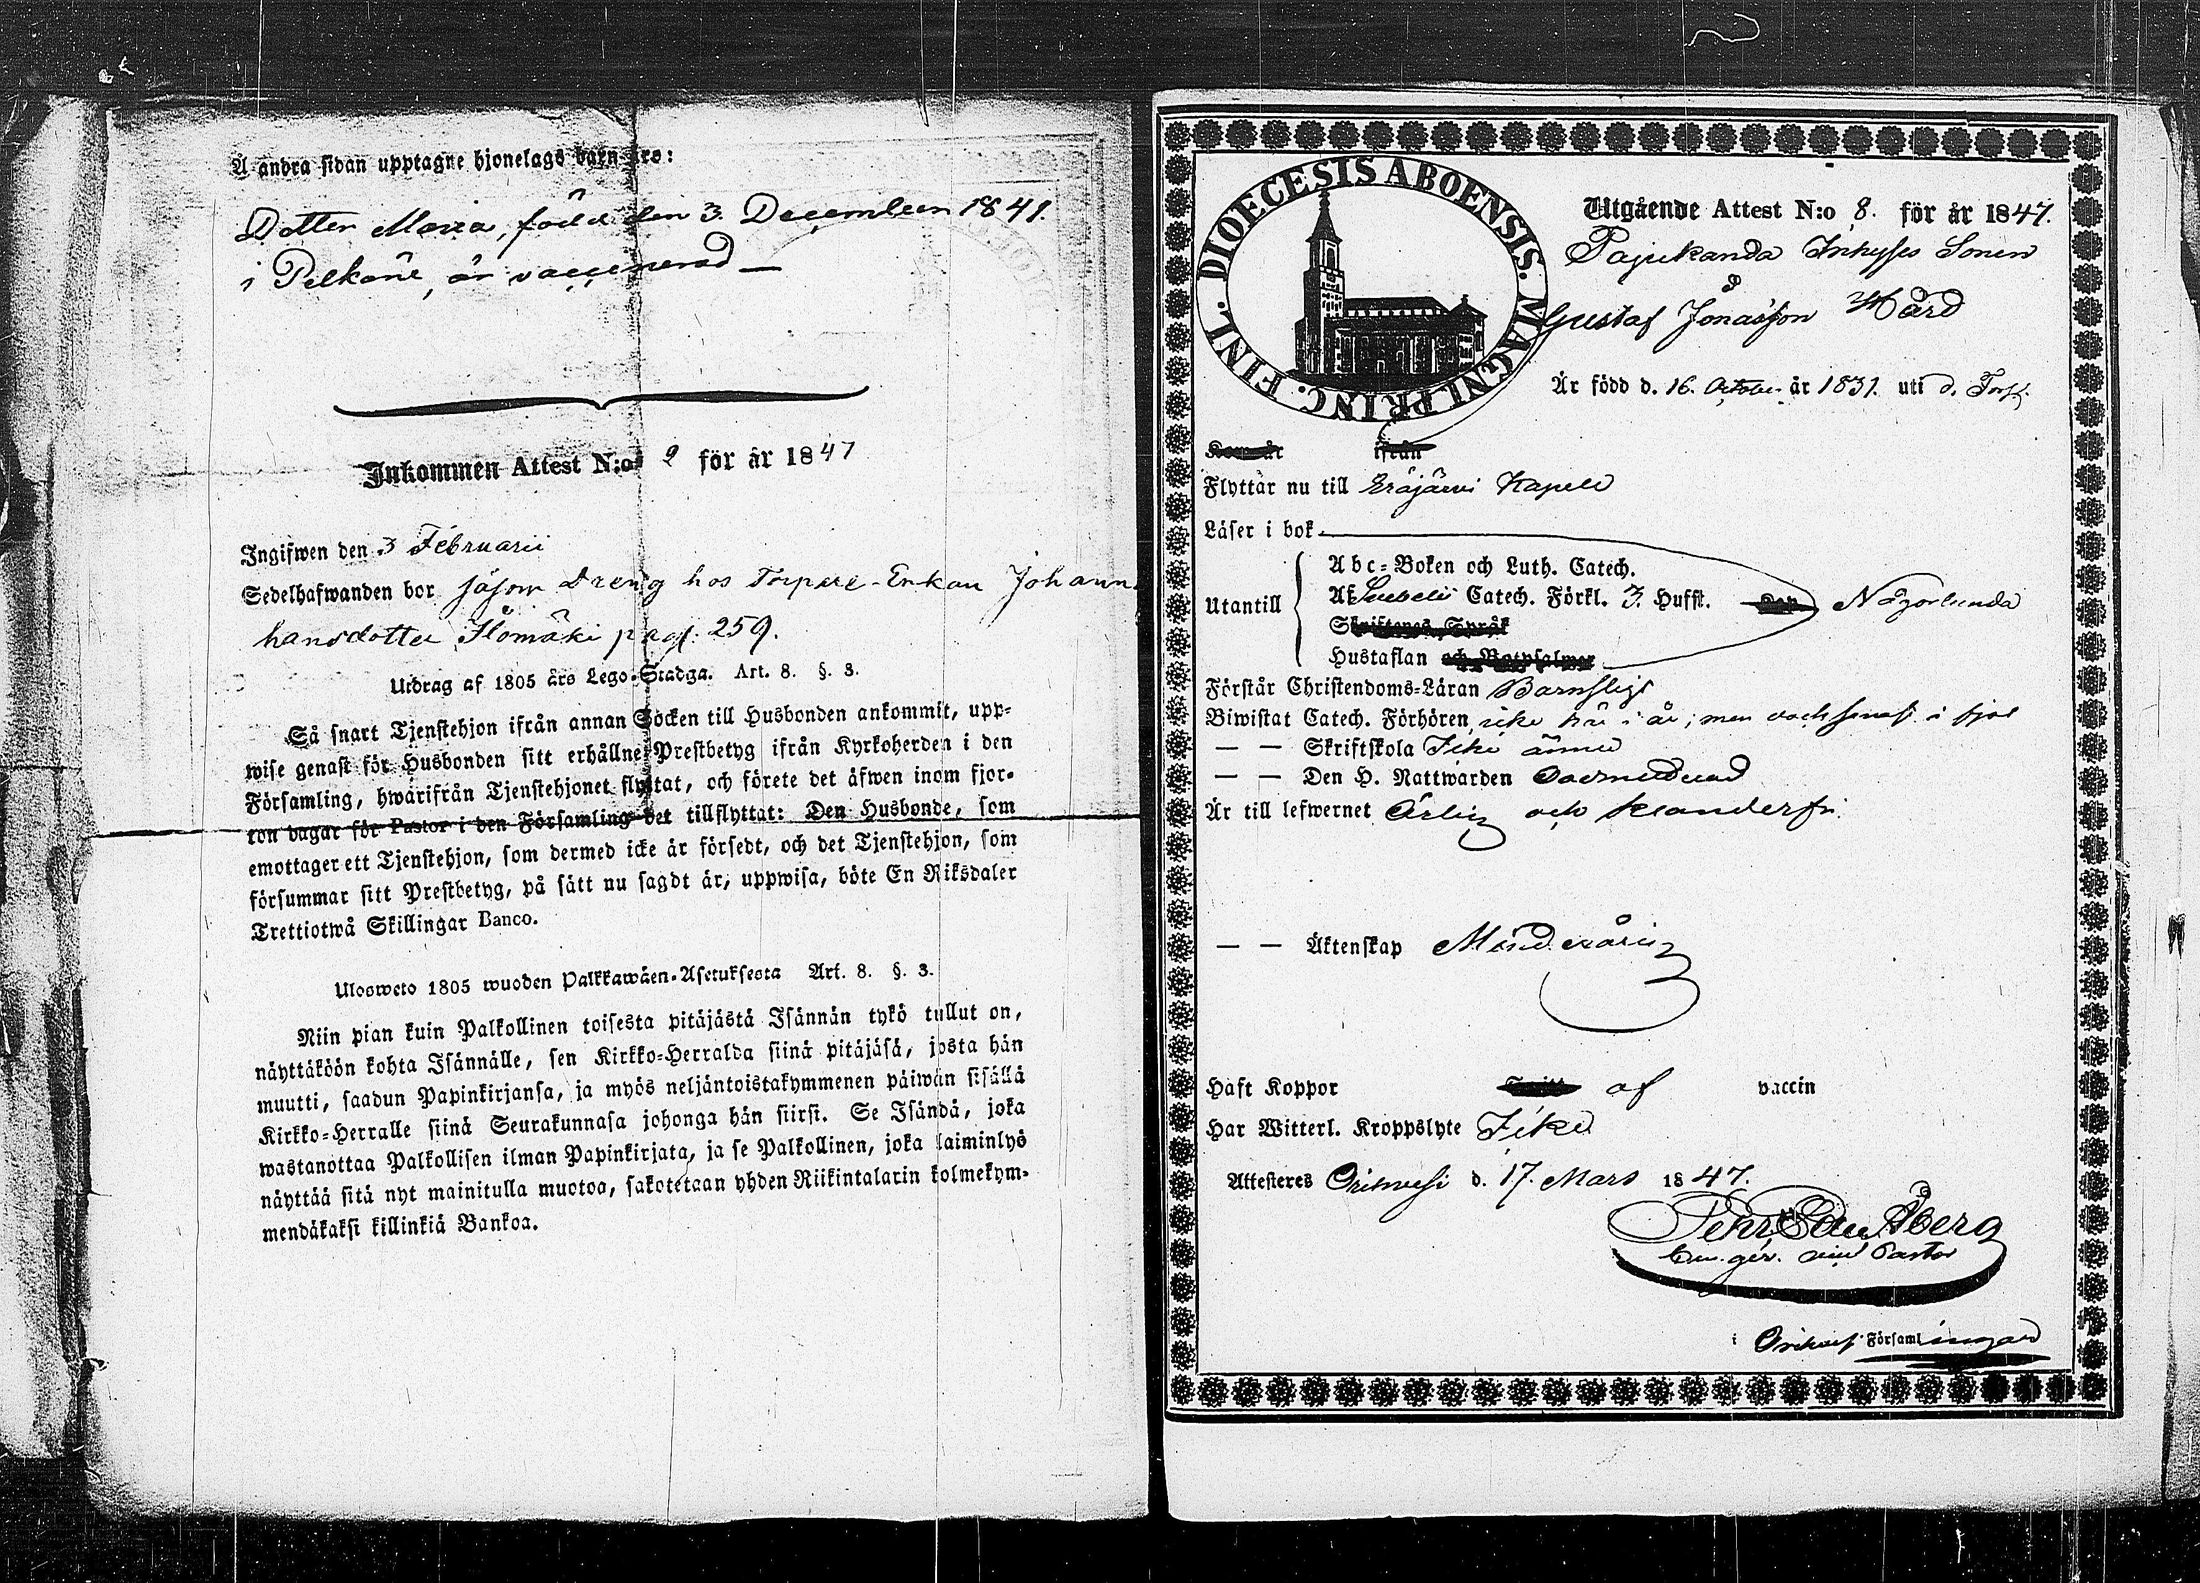 Å andra sidan upptagne hjonelags barn äro:
Dotter Maria, född den 3. December 1841.
i Pelkäne, är vaccinerad —
Inkommen Attest N:o 2 för år 1847
Ingifwen den 3 Februarii
Sedelhafwanden bor såsom Dreng hos Torpare-Enkan Johanna
hansdotter Ilomäki pag. 259.
Utdrag af 1805 års Lego-Stadga. Art. 8. §. 3.
Så snart Tjenstehjon ifrån annan Socken till Husbonden ankommit, upp-
wise genast för Husbonden sitt erhållne Prestbetyg ifrån Kyrkoherden i den
Församling, hwarifrån Tjenstehjonet flyttat, och förete det äfwen inom fjor-
ton dagar för Pastor i den Församling det tillflyttat: Den Husbonde, som
emottager ett Tjenstehjon, som dermed icke är försedt, och det Tjenstehjon, som
försummar sitt Prestbetyg, på sätt nu sagdt är, uppwisa, böte En Riksdaler
Trettiotwå Skillingar Banco.
Ulosweto 1805 wuoden Palkkawäen-Asetuksesta Art. 8. §. 3.
Niin pian kuin Palkollinen toisesta pitäjästä Isännän tykö tullut on,
näyttäköön kohta Isännälle, sen Kirkko-Herralda siinä pitäjäsä, josta hän
muutti, saadun Papinkirjansa, ja myös neljäntoistakymmenen päiwän sisällä
Kirkko-Herralle siinä Seurakunnasa johonga hän siirsi. Se Isändä, joka
wastanottaa Palkollisen ilman Papinkirjata, ja se Palkollinen, joka laiminlyö
näyttää sitä nyt mainitulla muotoa, sakotetaan yhden Riikintalarin kolmekym-
mendäkaksi killinkiä Bankoa.
DIOECESIS ABOENSIS. MAGNI PRINC. FINL.
Utgående Attest N:o 8. för år 1847.
Pajukanda Inhyses Sonen
Gustaf Jonasson Hård
Är född d. 16. October år 1831. uti d. Förs.
Kom år ifrån
Flyttar nu till Eräjärvi Kapell
Läser i bok
Abc-Boken och Luth. Catech.
Utantill Af Svebelii Catech. Förkl. 3. Hufst. Någorlunda
Skriftenes Språk
Hustaflan och Botpsalmer
Förstår Christendoms-Läran Barnsligt
Biwistat Catech. Förhören icke här i år; men också i fjol
— — Skriftskola Icke ännu
— — Den H. Nattwarden Oadmitterad
Är till lefwernet Ärlig och klanderfri.
— — Äktenskap Minderårig
Haft Koppor af vaccin
Har Witterl. Kroppslyte Icke
Attesteres Orihvesi d. 17. Mars 1847.
Pehr Edv. Åberg
i Orihvesi Församlingar